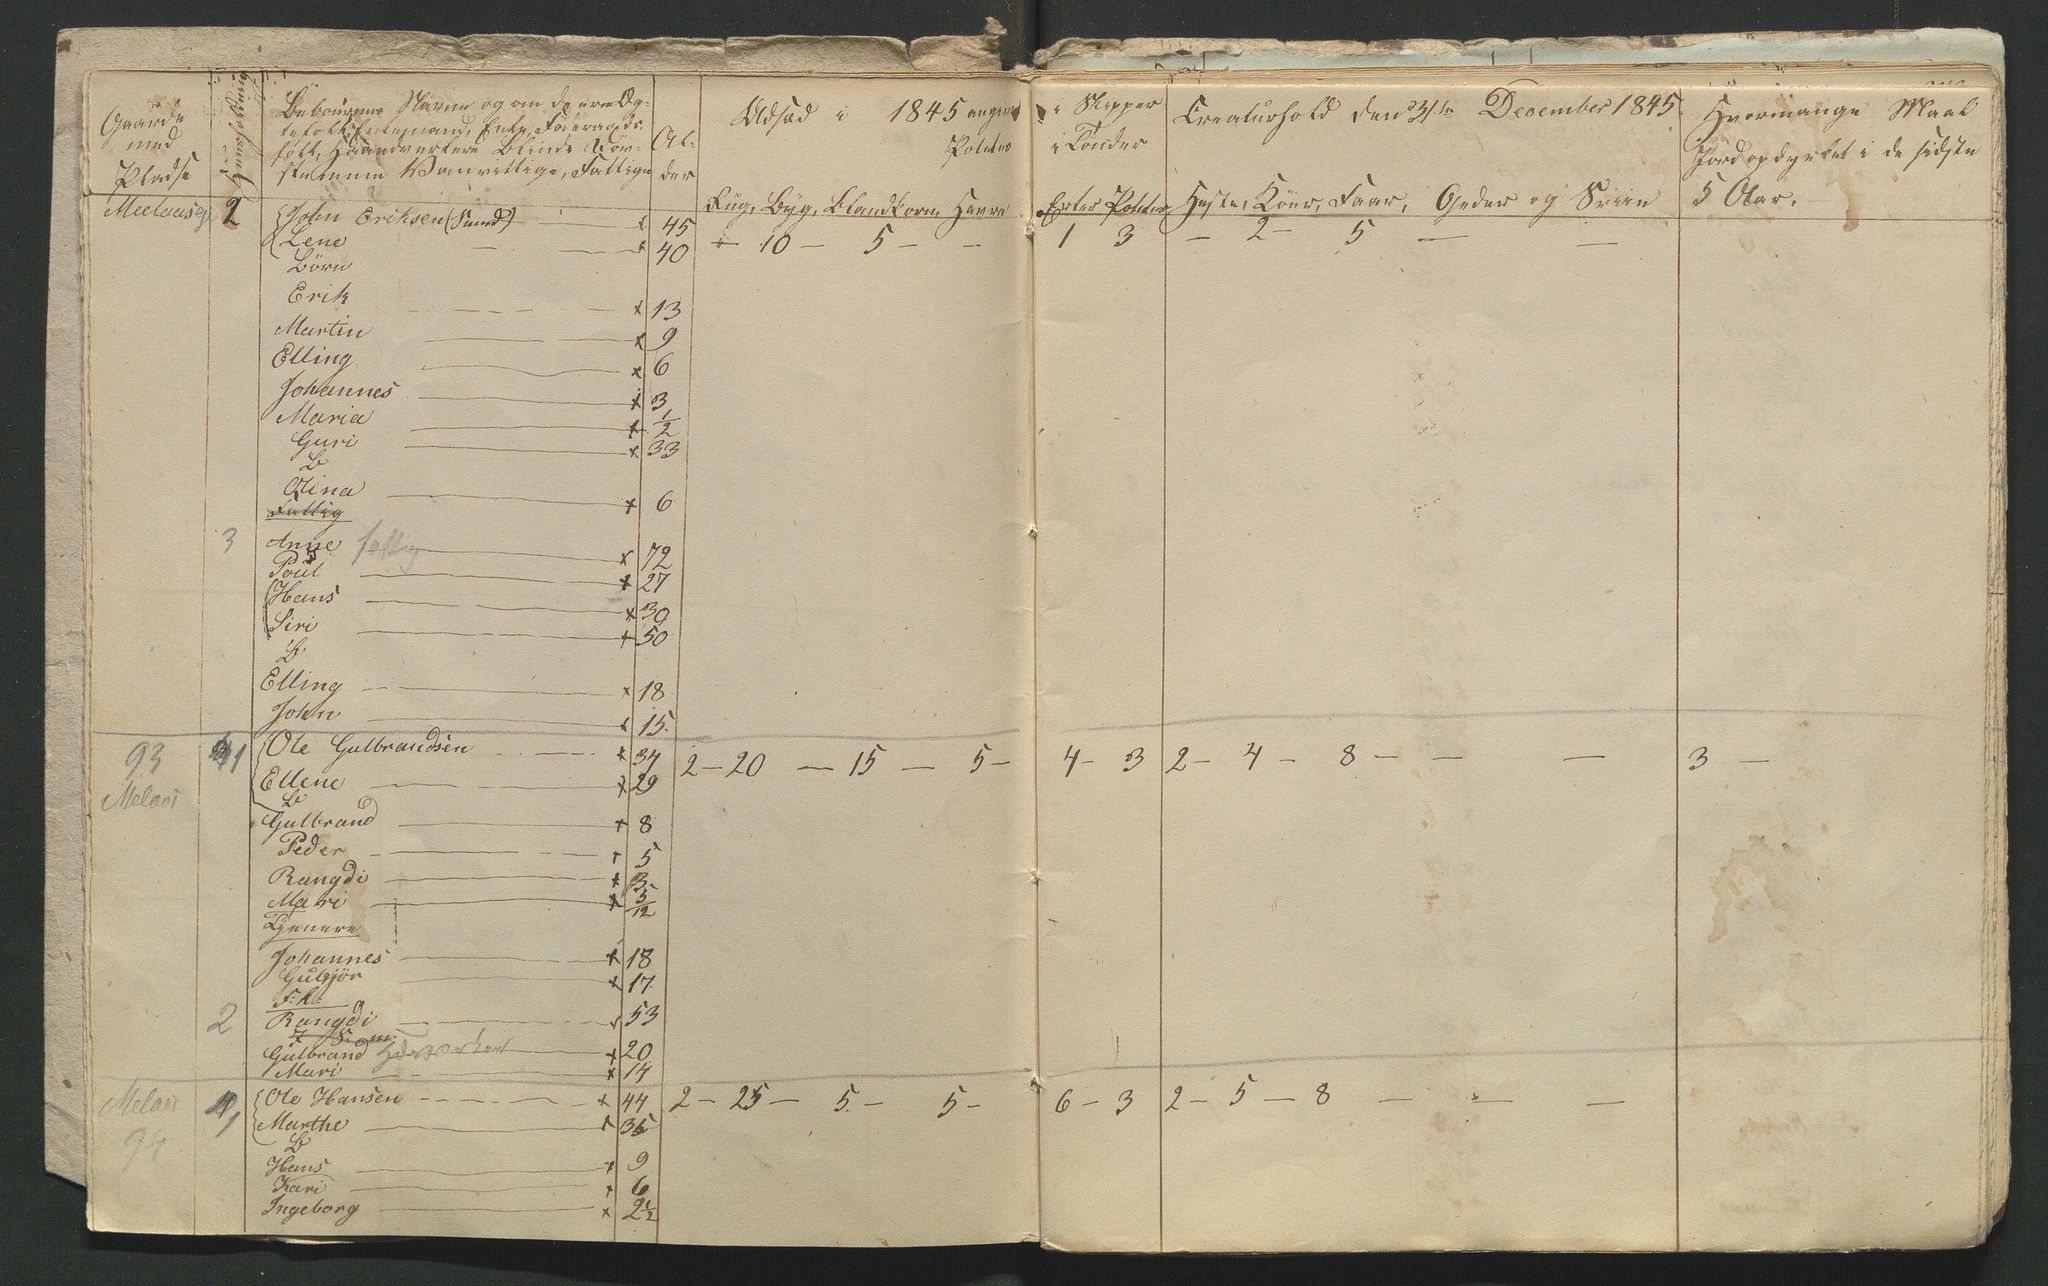 Gaarde med Pladse
Huusholdning
Beboernes Navne og om de ere Eg-
tefolk, Enkemand, Enke, Føderaads-
folk, Haandverkere Blinde Døv-
stumme Vanvittige, Fattige
Al-
der
Udsæd i 1845 angivet i Skipper
Poteter i Tønder
Rug, Byg, Blandkorn, Havre
Erter Poteter
Creaturhold den 31te December 1845
Heste, Køer, Faar, Geder og Sviin
Hvormange Maal
Jord opdyrket i de sidste
5 Aar.
2 John Eriksen (Smed) x 45
Lene x 40 + 10 — 5 — — 1 3 — 2 — 5 — —
Børn
Erik x 13
Martin x 9
Elling x 6
Johannes x 3
Maria x 1/2
Guri x 33
B
Olina x 6
Fattig
3 Anne fattig x 72
Poul x 27
Hans x 30
Siri x 50
B
Elling x 18
John x 15
93 1 Ole Gulbrandsen x 34 2 — 20 — 15 — 5 — 4 — 3 2 — 4 — 8 — — — 3 —
Melaas Ellene x 29
B
Gulbrand x 8
Peder x 5
Rangdi x 3
Mari x 5/12
Tjenere
Johannes x 18
Gulbjør x 17
F:k:
2 Rangdi x 53
Gulbrand x 20
Mari x 14
Melaas 1 Ole Hansen x 44 2 — 25 — 5 — 5 — 6 — 3 2 — 5 — 8 — — —
94 Marthe x 36
B
Hans x 9
Kari x 6
Ingeborg x 2 1/2